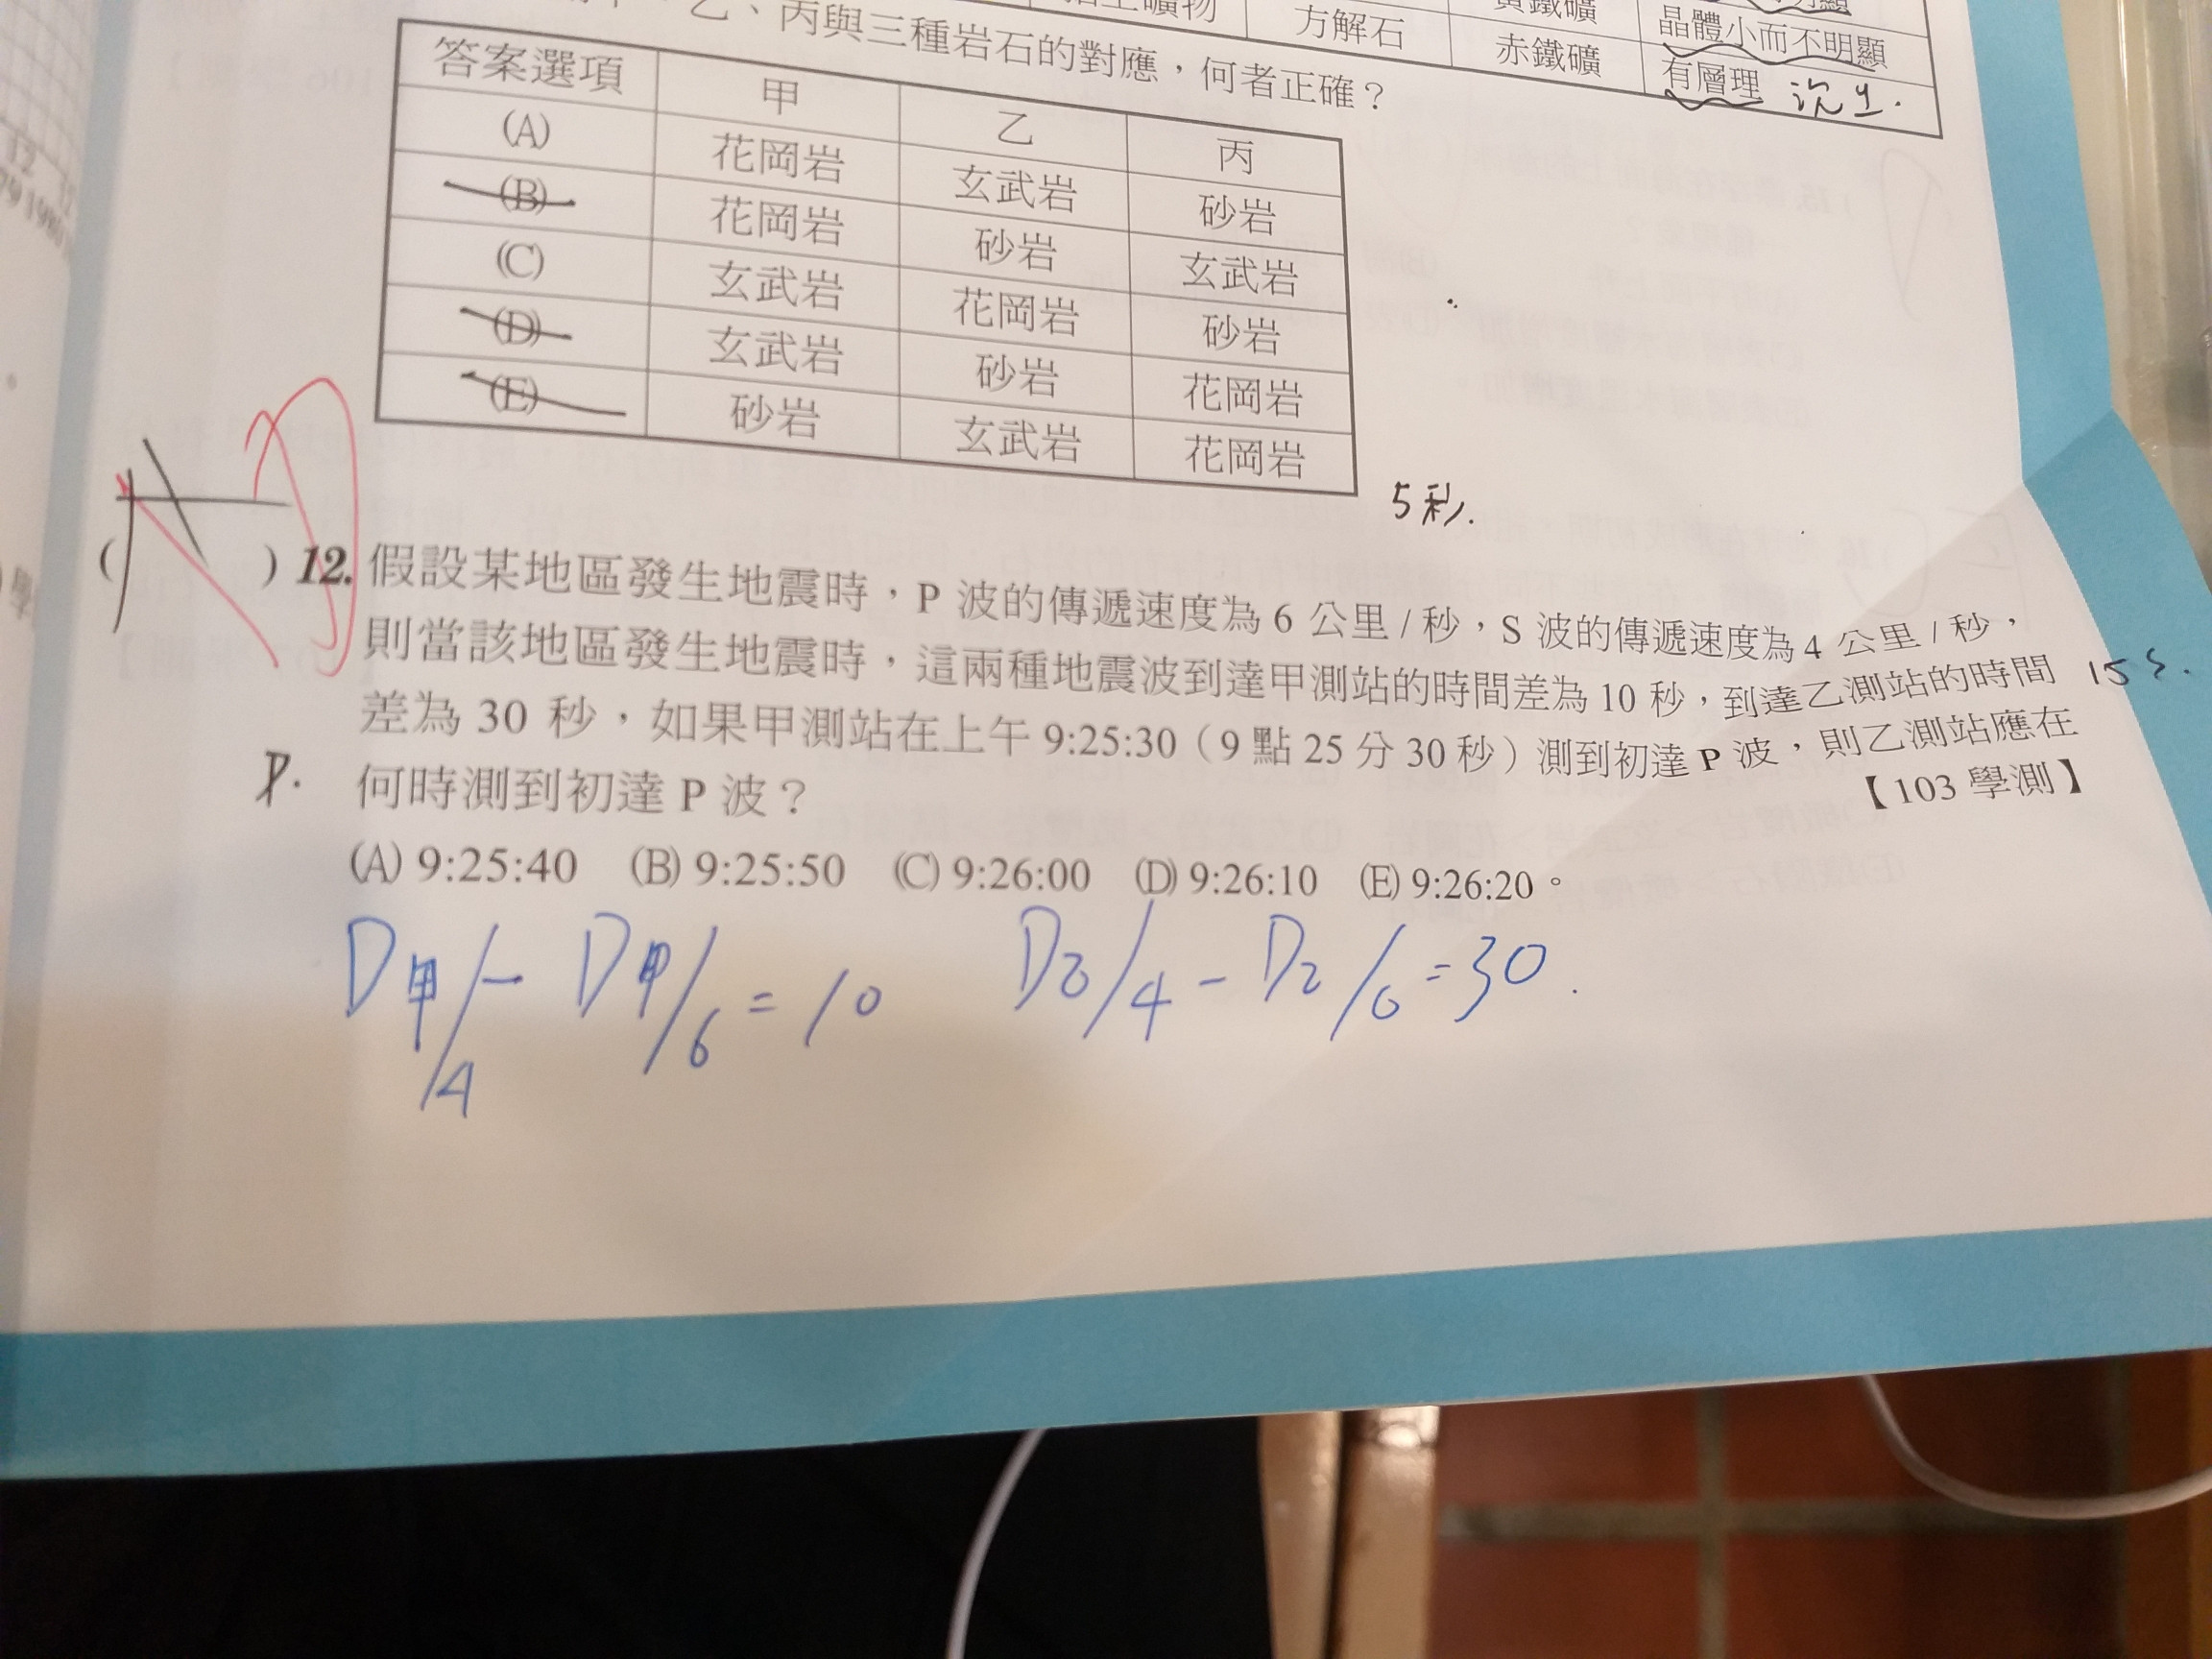 方解石 赤鐵礦 晶體小而不明顯
有層理
乙、丙與三種岩石的對應，何者正確？
答案選項 甲 乙 丙
(A) 花岡岩 玄武岩 砂岩
(B) 花岡岩 砂岩 玄武岩
(C) 玄武岩 花岡岩 砂岩
(D) 玄武岩 砂岩 花岡岩
(E) 砂岩 玄武岩 花岡岩
5秒.
( ) 12. 假設某地區發生地震時，P 波的傳遞速度為 6 公里 / 秒，S 波的傳遞速度為 4 公里 / 秒，
則當該地區發生地震時，這兩種地震波到達甲測站的時間差為 10 秒，到達乙測站的時間
差為 30 秒，如果甲測站在上午 9:25:30（9 點 25 分 30 秒）測到初達 P 波，則乙測站應在
何時測到初達 P 波？
【103 學測】
(A) 9:25:40 (B) 9:25:50 (C) 9:26:00 (D) 9:26:10 (E) 9:26:20。
D甲/4 - D甲/6 = 10 D乙/4 - D乙/6 = 30.